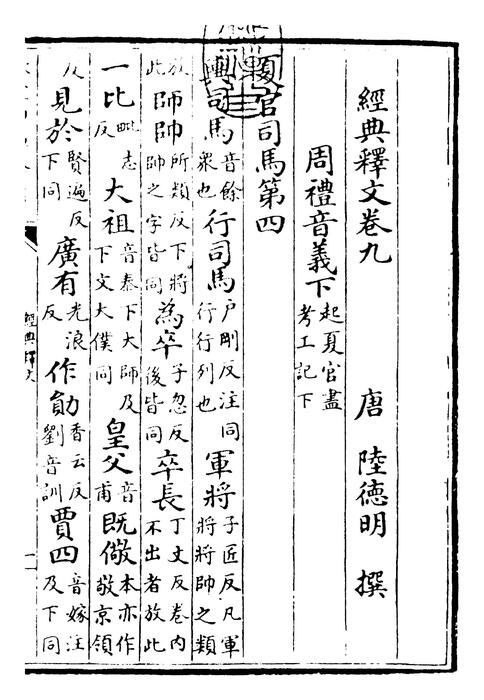 經典釋文卷九 唐 陸德明 撰
周禮音義下 起夏官盡考工記下
夏官司馬第四
輿司馬 音餘衆也 行司馬 戶剛反注同行行列也 軍將 子匠反凡軍將將帥之類
放此 師帥 所類反下將帥之字皆同 為卒 子忽反後皆同 卒長 丁丈反卷内不出者放此
一比 毗志反 大祖 音泰下大師及下文大僕同 皇父 音甫 既儆 本亦作敬京領
反 見於 賢遍反下同 廣有 光浪反 作勛 香云反劉音訓 賈四 音嫁注及下同
經典釋文